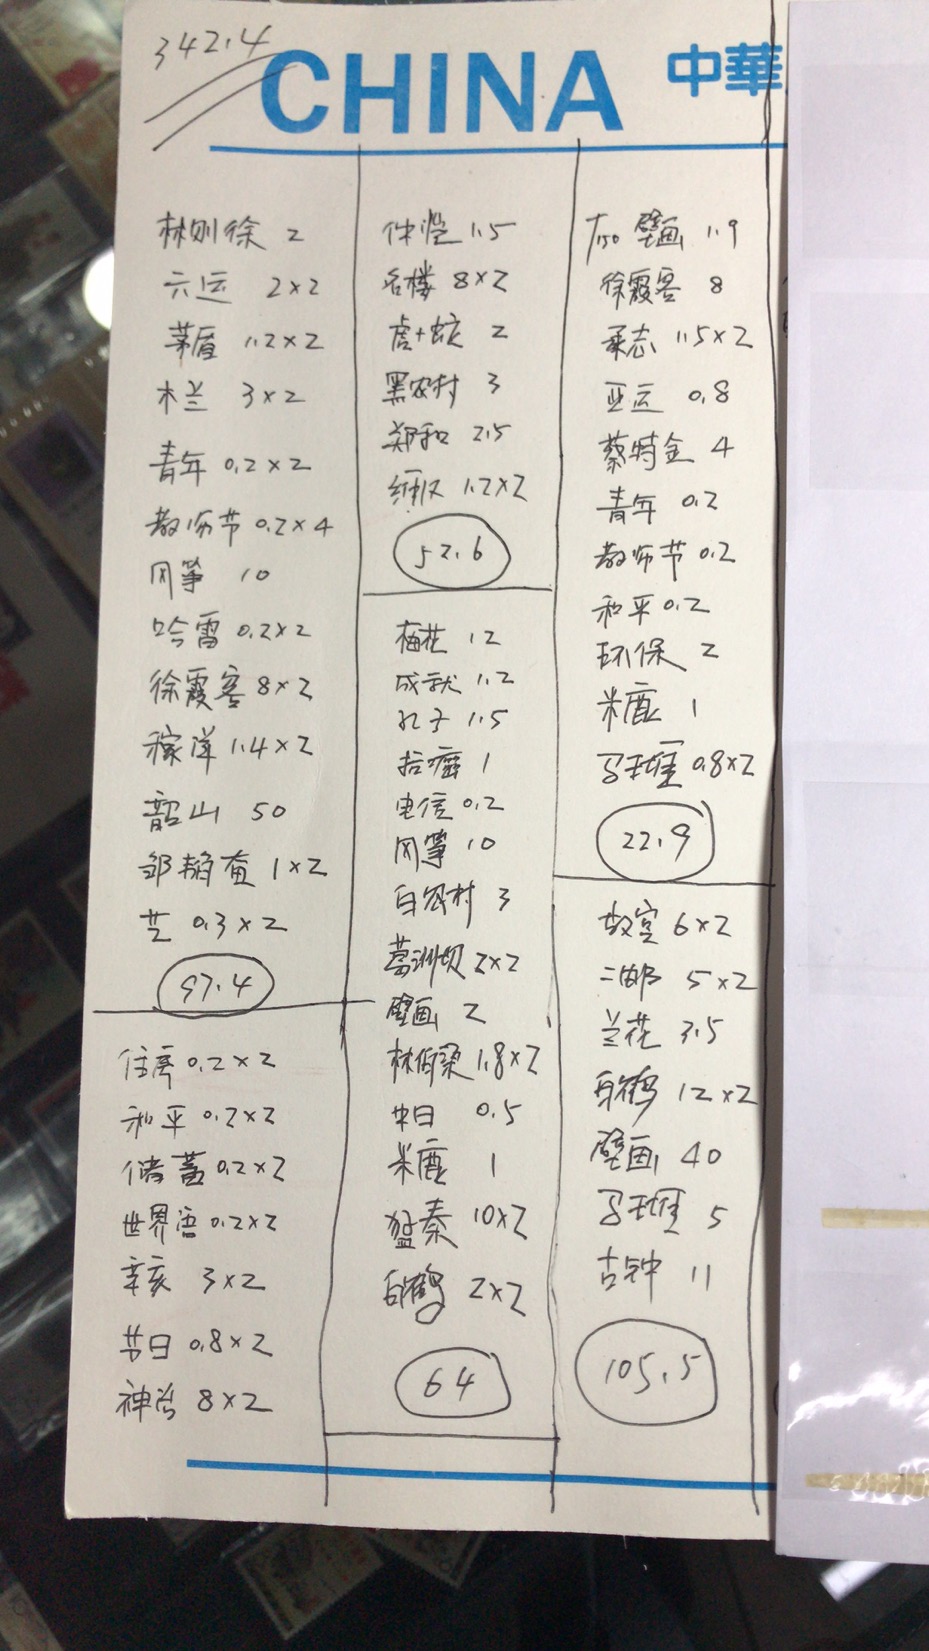 342.4
CHINA 中華
林则徐 2
六运 2×2
茅盾 1.2×2
木兰 3×2
青年 0.2×2
教师节 0.2×4
风筝 10
哈雷 0.2×2
徐霞客 8×2
1.4×2
韶山 50
邹韬奋 1×2
艺 0.3×2
97.4
住房 0.2×2
和平 0.2×2
储蓄 0.2×2
世界语 0.2×2
辛亥 3×2
节日 0.8×2
神治 8×2
仲恺 1.5
名楼 8×2
虎+蛇 2
黑农村 3
郑和 2.5
1.2×2
52.6
梅花 12
成就 1.2
孔子 1.5
抗癌 1
电信 0.2
风筝 10
白农村 3
葛洲坝 2×2
壁画 2
林伯渠 1.8×2
中日 0.5
米鹿 1
猛秦 10×2
白鹤 2×2
64
T150 壁画 1.9
徐霞客 8
柔志 1.5×2
亚运 0.8
蔡特金 4
青年 0.2
教师节 0.2
和平 0.2
环保 2
米鹿 1
马王堆 0.8×2
22.9
故宫 6×2
二邮 5×2
兰花 3.5
白鹤 12×2
壁画 40
马王堆 5
古钟 11
105.5